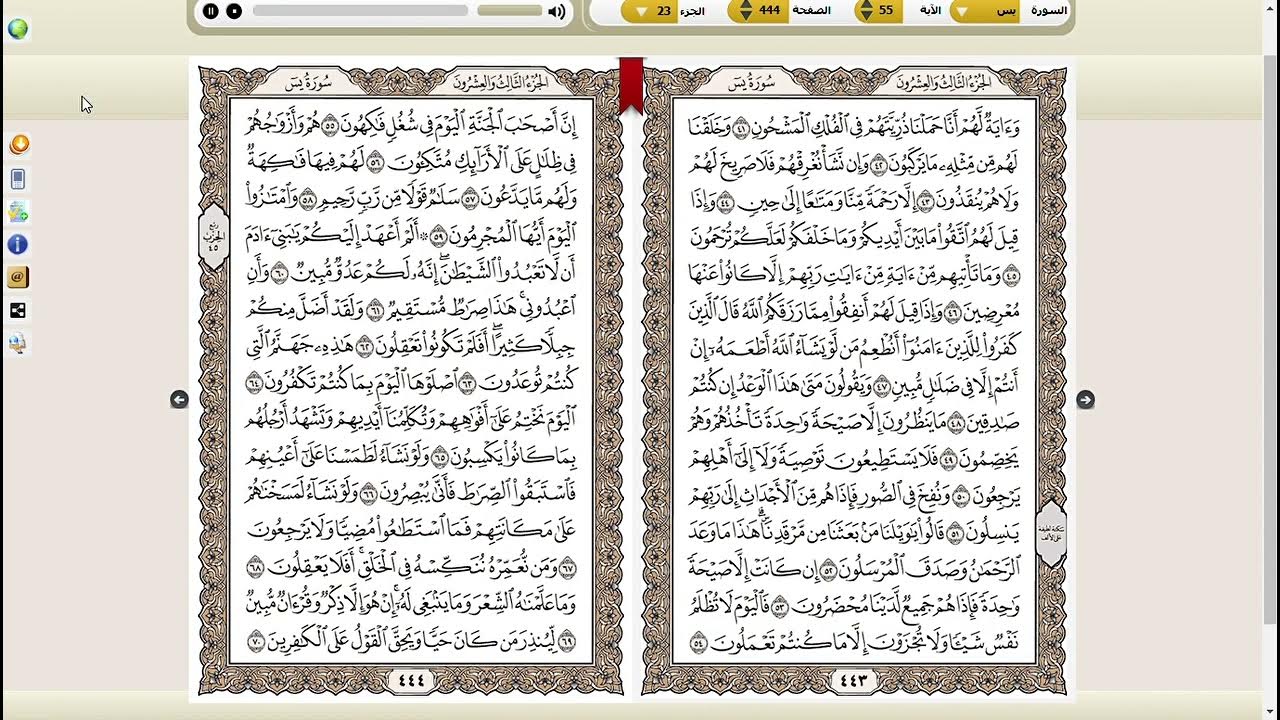 السورة يس الآية 55 الصفحة 444 الجزء 23
الجزء الثالث والعشرون سورة يس
وَءَايَةٌ لَّهُمْ أَنَّا حَمَلْنَا ذُرِّيَّتَهُمْ فِي الْفُلْكِ الْمَشْحُونِ ٤١ وَخَلَقْنَا
لَهُم مِّن مِّثْلِهِ مَا يَرْكَبُونَ ٤٢ وَإِن نَّشَأْ نُغْرِقْهُمْ فَلَا صَرِيخَ لَهُمْ
وَلَا هُمْ يُنقَذُونَ ٤٣ إِلَّا رَحْمَةً مِّنَّا وَمَتَاعًا إِلَىٰ حِينٍ ٤٤ وَإِذَا
قِيلَ لَهُمُ اتَّقُوا مَا بَيْنَ أَيْدِيكُمْ وَمَا خَلْفَكُمْ لَعَلَّكُمْ تُرْحَمُونَ
٤٥ وَمَا تَأْتِيهِم مِّنْ ءَايَةٍ مِّنْ ءَايَاتِ رَبِّهِمْ إِلَّا كَانُوا عَنْهَا
مُعْرِضِينَ ٤٦ وَإِذَا قِيلَ لَهُمْ أَنفِقُوا مِمَّا رَزَقَكُمُ اللَّهُ قَالَ الَّذِينَ
كَفَرُوا لِلَّذِينَ ءَامَنُوا أَنُطْعِمُ مَن لَّوْ يَشَاءُ اللَّهُ أَطْعَمَهُ إِنْ
أَنتُمْ إِلَّا فِي ضَلَالٍ مُّبِينٍ ٤٧ وَيَقُولُونَ مَتَىٰ هَٰذَا الْوَعْدُ إِن كُنتُمْ
صَادِقِينَ ٤٨ مَا يَنظُرُونَ إِلَّا صَيْحَةً وَاحِدَةً تَأْخُذُهُمْ وَهُمْ
يَخِصِّمُونَ ٤٩ فَلَا يَسْتَطِيعُونَ تَوْصِيَةً وَلَا إِلَىٰ أَهْلِهِمْ
يَرْجِعُونَ ٥٠ وَنُفِخَ فِي الصُّورِ فَإِذَا هُم مِّنَ الْأَجْدَاثِ إِلَىٰ رَبِّهِمْ
يَنسِلُونَ ٥١ قَالُوا يَا وَيْلَنَا مَن بَعَثَنَا مِن مَّرْقَدِنَا هَٰذَا مَا وَعَدَ
الرَّحْمَٰنُ وَصَدَقَ الْمُرْسَلُونَ ٥٢ إِن كَانَتْ إِلَّا صَيْحَةً
وَاحِدَةً فَإِذَا هُمْ جَمِيعٌ لَّدَيْنَا مُحْضَرُونَ ٥٣ فَالْيَوْمَ لَا تُظْلَمُ
نَفْسٌ شَيْئًا وَلَا تُجْزَوْنَ إِلَّا مَا كُنتُمْ تَعْمَلُونَ ٥٤
٤٤٣
الجزء الثالث والعشرون سورة يس
إِنَّ أَصْحَابَ الْجَنَّةِ الْيَوْمَ فِي شُغُلٍ فَاكِهُونَ ٥٥ هُمْ وَأَزْوَاجُهُمْ
فِي ظِلَالٍ عَلَى الْأَرَائِكِ مُتَّكِئُونَ ٥٦ لَهُمْ فِيهَا فَاكِهَةٌ
وَلَهُم مَّا يَدَّعُونَ ٥٧ سَلَامٌ قَوْلًا مِّن رَّبٍّ رَّحِيمٍ ٥٨ وَامْتَازُوا
الْيَوْمَ أَيُّهَا الْمُجْرِمُونَ ٥٩ ۞ أَلَمْ أَعْهَدْ إِلَيْكُمْ يَا بَنِي ءَادَمَ
أَن لَّا تَعْبُدُوا الشَّيْطَانَ إِنَّهُ لَكُمْ عَدُوٌّ مُّبِينٌ ٦٠ وَأَنِ
اعْبُدُونِي هَٰذَا صِرَاطٌ مُّسْتَقِيمٌ ٦١ وَلَقَدْ أَضَلَّ مِنكُمْ
جِبِلًّا كَثِيرًا أَفَلَمْ تَكُونُوا تَعْقِلُونَ ٦٢ هَٰذِهِ جَهَنَّمُ الَّتِي
كُنتُمْ تُوعَدُونَ ٦٣ اصْلَوْهَا الْيَوْمَ بِمَا كُنتُمْ تَكْفُرُونَ ٦٤
الْيَوْمَ نَخْتِمُ عَلَىٰ أَفْوَاهِهِمْ وَتُكَلِّمُنَا أَيْدِيهِمْ وَتَشْهَدُ أَرْجُلُهُم
بِمَا كَانُوا يَكْسِبُونَ ٦٥ وَلَوْ نَشَاءُ لَطَمَسْنَا عَلَىٰ أَعْيُنِهِمْ
فَاسْتَبَقُوا الصِّرَاطَ فَأَنَّىٰ يُبْصِرُونَ ٦٦ وَلَوْ نَشَاءُ لَمَسَخْنَاهُمْ
عَلَىٰ مَكَانَتِهِمْ فَمَا اسْتَطَاعُوا مُضِيًّا وَلَا يَرْجِعُونَ
٦٧ وَمَن نُّعَمِّرْهُ نُنَكِّسْهُ فِي الْخَلْقِ أَفَلَا يَعْقِلُونَ ٦٨
وَمَا عَلَّمْنَاهُ الشِّعْرَ وَمَا يَنبَغِي لَهُ إِنْ هُوَ إِلَّا ذِكْرٌ وَقُرْءَانٌ مُّبِينٌ
٦٩ لِّيُنذِرَ مَن كَانَ حَيًّا وَيَحِقَّ الْقَوْلُ عَلَى الْكَافِرِينَ ٧٠
ربع
الحزب
٤٥
٤٤٤